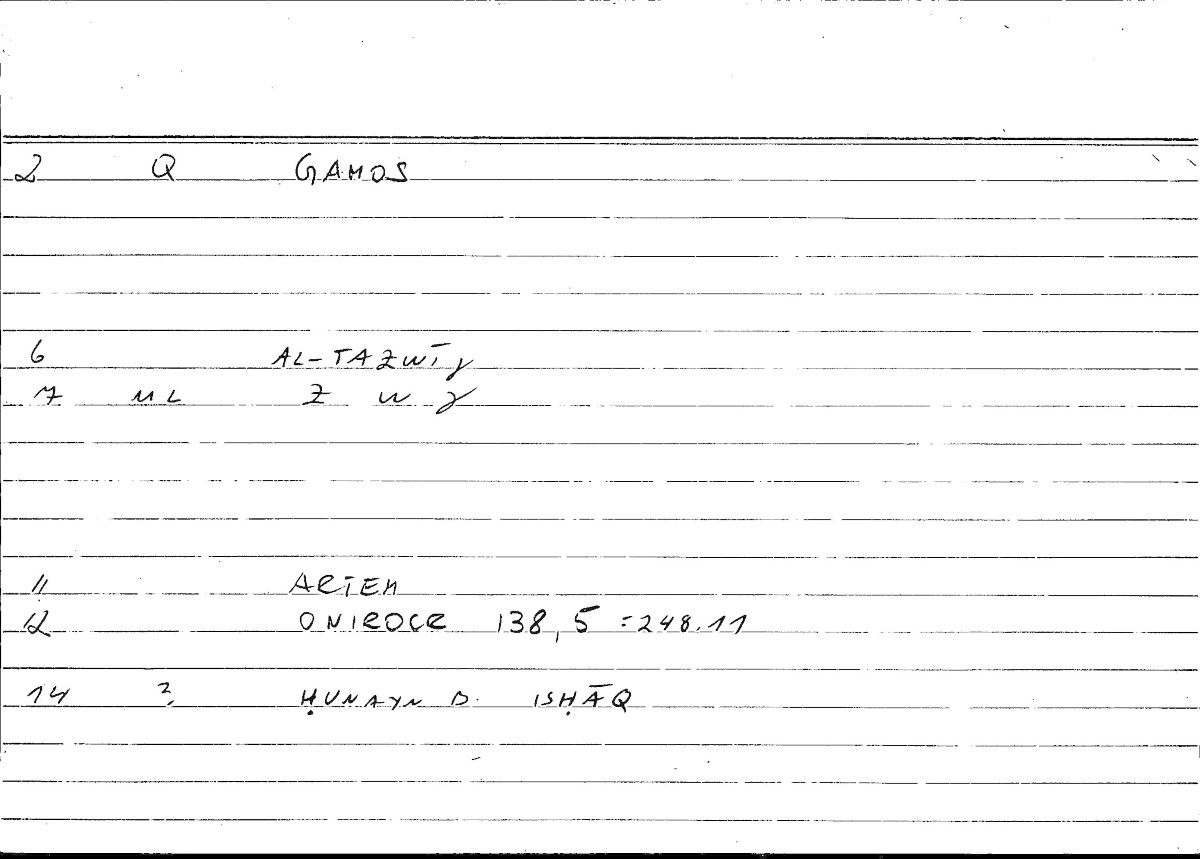 2 Q GAMOS
6 AL-TAZWĪǧ
7 ML Z W ǧ
11 ARTEM
12 ONIROCR 138,5 =248.11
14 ? ḤUNAYN B. ISḤĀQ